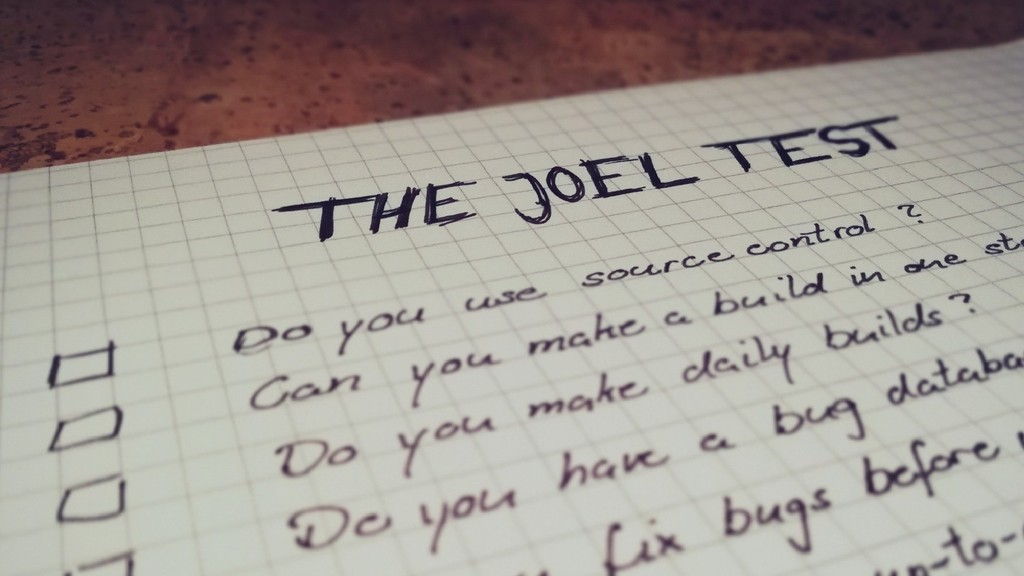 THE JOEL TEST
Do you use source control ?
Can you make a build in one
Do you make daily builds ?
Do you have a bug
fix bugs before